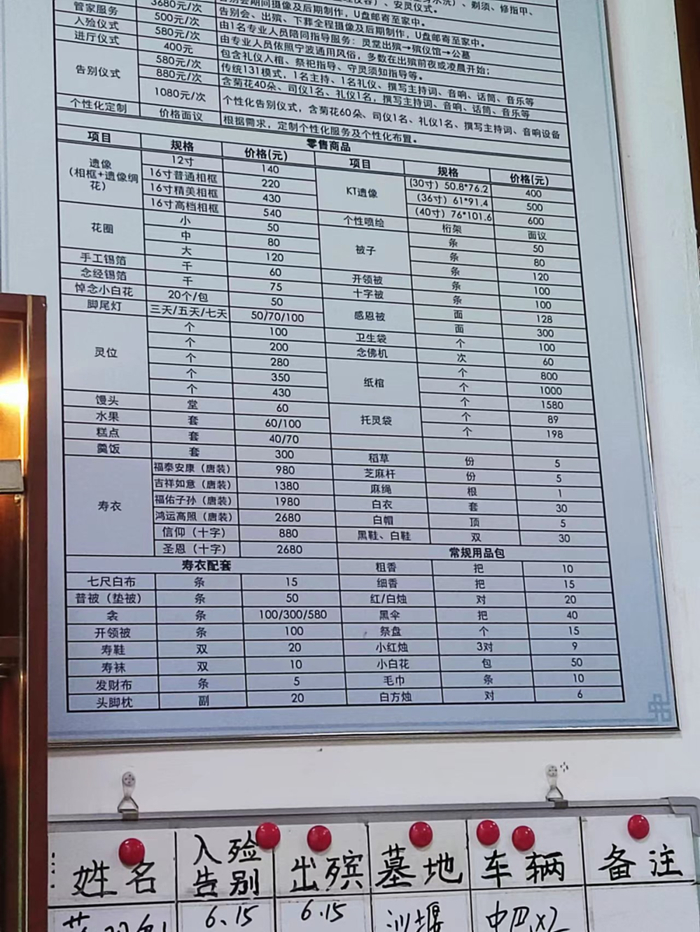 3680元/次 告别会期间摄像及后期制作，U盘邮寄至家中。
管家服务 500元/次 告别会、出殡、下葬全程摄像及后期制作，U盘邮寄至家中。
入殓仪式 580元/次 由1名专业人员陪同指导服务：灵堂出殡→殡仪馆→公墓
进厅仪式 400元 由专业人员依照宁波通用风俗，多数在出殡前夜或凌晨开始；
告别仪式 580元/次 包含礼仪入棺、祭祀指导、守灵须知指导等。
880元/次 传统131模式，1名主持、1名礼仪、撰写主持词、音响、话筒、音乐等
含菊花40朵、司仪1名、礼仪1名，撰写主持词、音响、话筒、音乐等
1080元/次 个性化告别仪式，含菊花60朵、司仪1名、礼仪1名、撰写主持词、音响设备
个性化定制 价格面议 根据需求，定制个性化服务及个性化布置。
零售商品
项目 规格 价格(元) 项目 规格 价格(元)
遗像(相框+遗像绸花) 12寸 140
16寸普通相框 220
16寸精美相框 430
16寸高档相框 540
KT遗像 (30寸) 50.8*76.2 400
(36寸) 61*91.4 500
(40寸) 76*101.6 600
花圈 小 50
中 80
大 120
个性喷绘 桁架 面议
被子 条 50
条 80
条 120
手工锡箔 千 60
念经锡箔 千 75
悼念小白花 20个/包 50
脚尾灯 三天/五天/七天 50/70/100
开领被 条 100
十字被 条 100
感恩被 面 128
面 300
灵位 个 100
个 200
个 280
个 350
个 430
卫生袋 个 100
念佛机 次 60
纸棺 个 800
个 1000
个 1580
托灵袋 个 89
个 198
馒头 堂 60
水果 套 60/100
糕点 套 40/70
羹饭 套 300
稻草 份 5
芝麻杆 份 5
麻绳 根 1
白衣 套 30
白帽 顶 5
黑鞋、白鞋 双 30
寿衣 福泰安康（唐装） 980
吉祥如意（唐装） 1380
福佑子孙（唐装） 1980
鸿运高照（唐装） 2680
信仰（十字） 880
圣恩（十字） 2680
寿衣配套
七尺白布 条 15
普被（垫被） 条 50
衾 条 100/300/580
开领被 条 100
寿鞋 双 20
寿袜 双 10
发财布 条 5
头脚枕 副 20
常规用品包
粗香 把 10
细香 把 15
红/白烛 对 20
黑伞 把 40
祭盘 个 15
小红烛 3对 9
小白花 包 50
毛巾 条 10
白方烛 对 6
姓名 入殓告别 出殡 墓地 车辆 备注
6.15 6.15 沙堰 中巴x2